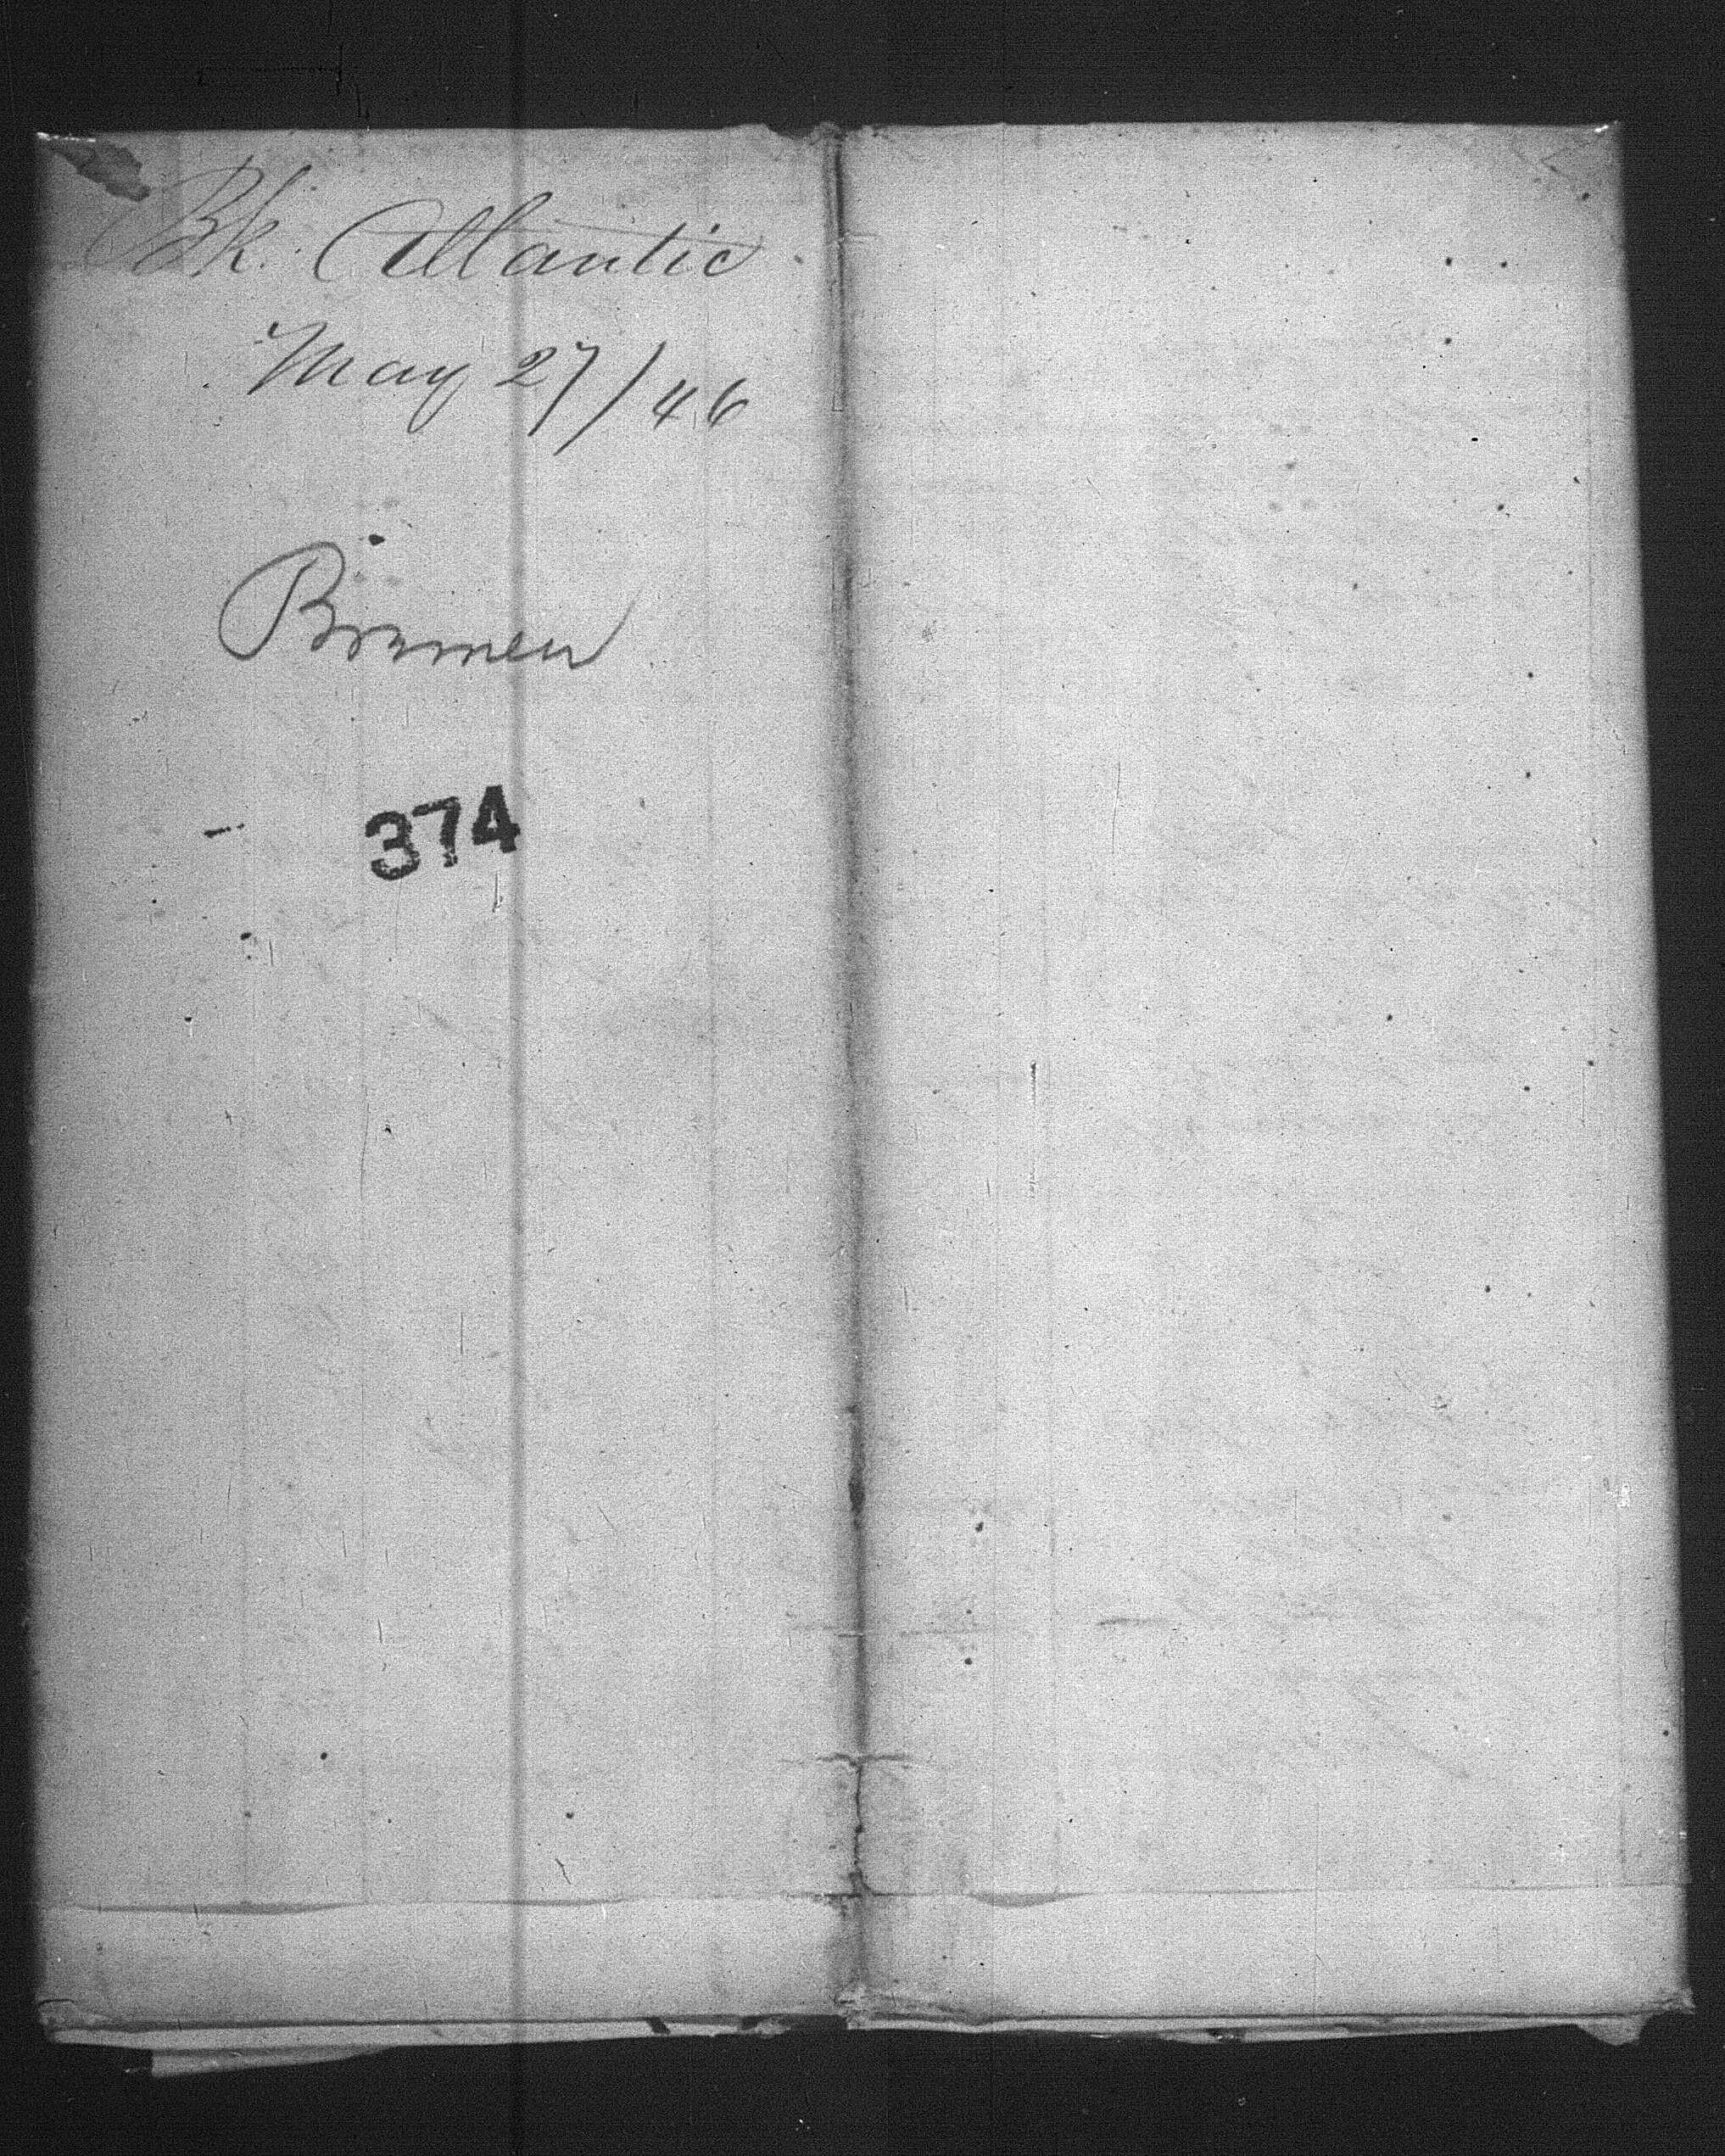 Bk. Atlantic
May 27/46
Bremen
374